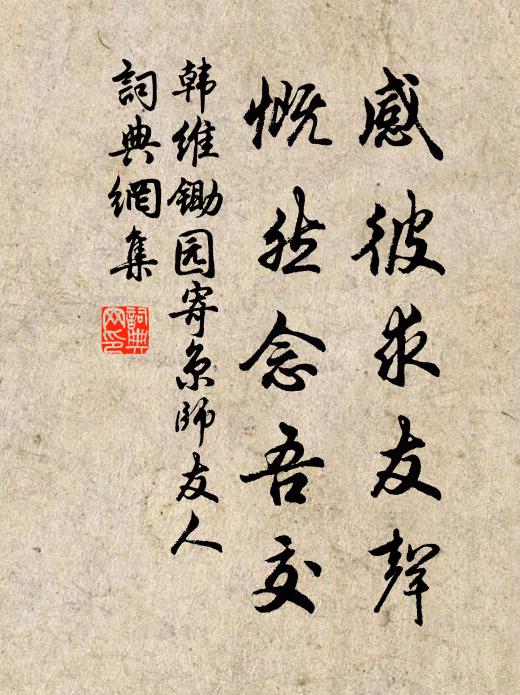 感彼求友聲
慨然念吾交
韩維鋤园寄京師友人
詞典網集
詞典
网印